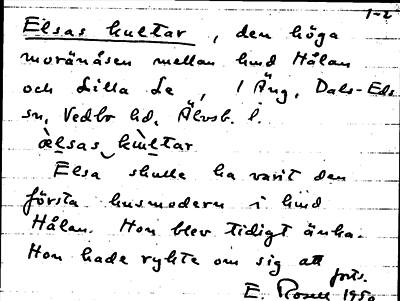 1-2
Elsas kultar, den höga
moränåsen mellan hmd Hålan
och Lilla Le, 1 Äng, Dals-Eds
sn, Vedbo hd. Älvsb. l.
æ̀lsas kùltar
Elsa skulle ha varit den
första husmodern i hmd
Hålan. Hon blev tidigt änka.
Hon hade rykte om sig att
forts.
E. Rosell 1950